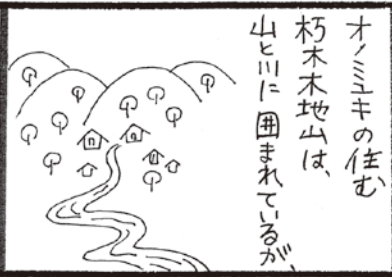 オノミユキの住む
朽木木地山は、
山と川に囲まれているが、